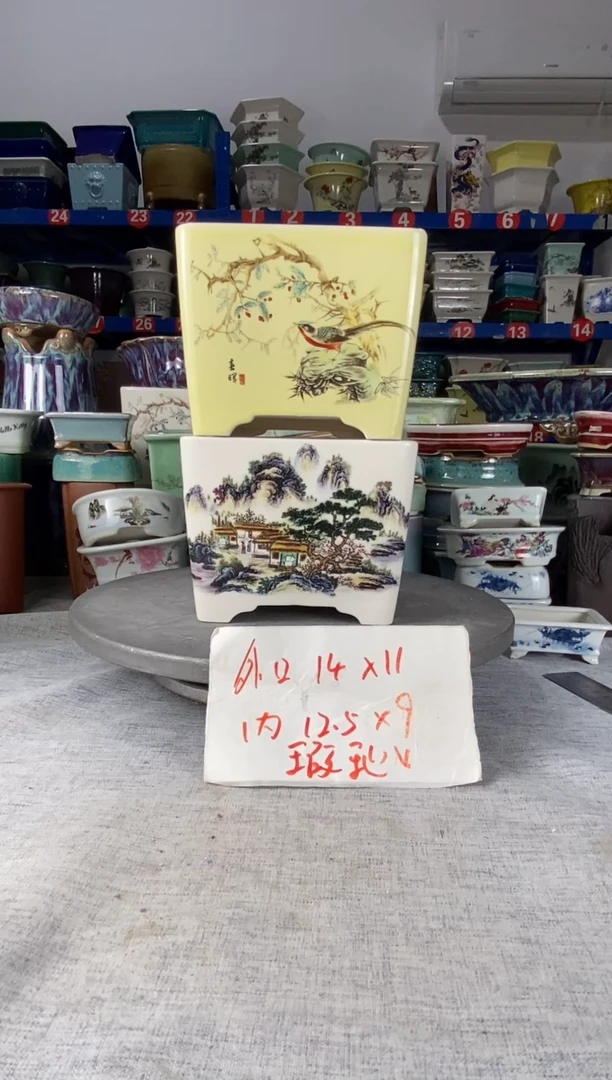 24 23 22 1 2 3 4 5 6 7
26 12 13 14
Hello Kitty
18
外口 14 x 11
内 12.5 x 9
瑕